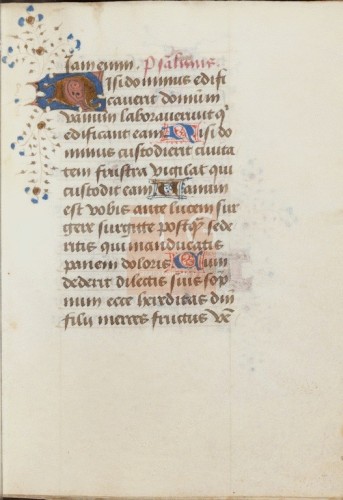 Iam enim. Psalmus.
Nisi dominus edifi
caverit domum in
vanum laboraverunt q̄
edificant eam Nisi do
minus custodierit civita
tem frustra vigilat qui
custodit eam Vanum
est vobis ante lucem sur
gere surgite postq̄ sede
ritis qui manducatis
panem doloris Cum
dederit dilectis suis som
num ecce hereditas dm̄
filij merces fructus vē